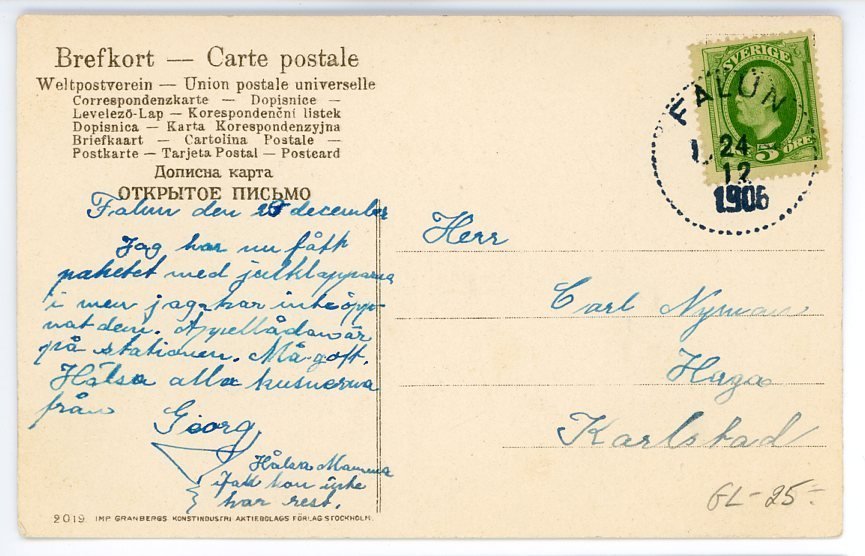 Brefkort — Carte postale
Weltpostverein — Union postale universelle
Correspondenzkarte — Dopisnice —
Levelező-Lap — Korespondenční listek
Dopisnica — Karta Korespondenzyjna
Briefkaart — Cartolina Postale —
Postkarte — Tarjeta Postal — Postcard
Дописна карта
ОТКРЫТОЕ ПИСЬМО
Falun den december
Jag har nu fått
paketet med julklapparna
i men jag har inte öpp-
nat dem. Appellådan är
på stationen. Må godt.
Hälsa alla kusinerna
från
Georg.
Hälsa Mamma
ifall hon inte
har rest.
2019 IMP GRANBERGS KONSTINDUSTRI AKTIEBOLAGS FÖRLAG STOCKHOLM.
SVERIGE
5 ÖRE
FALUN
24
12
1906
Herr
Carl Nyman
Haga
Karlstad
GL-25:-